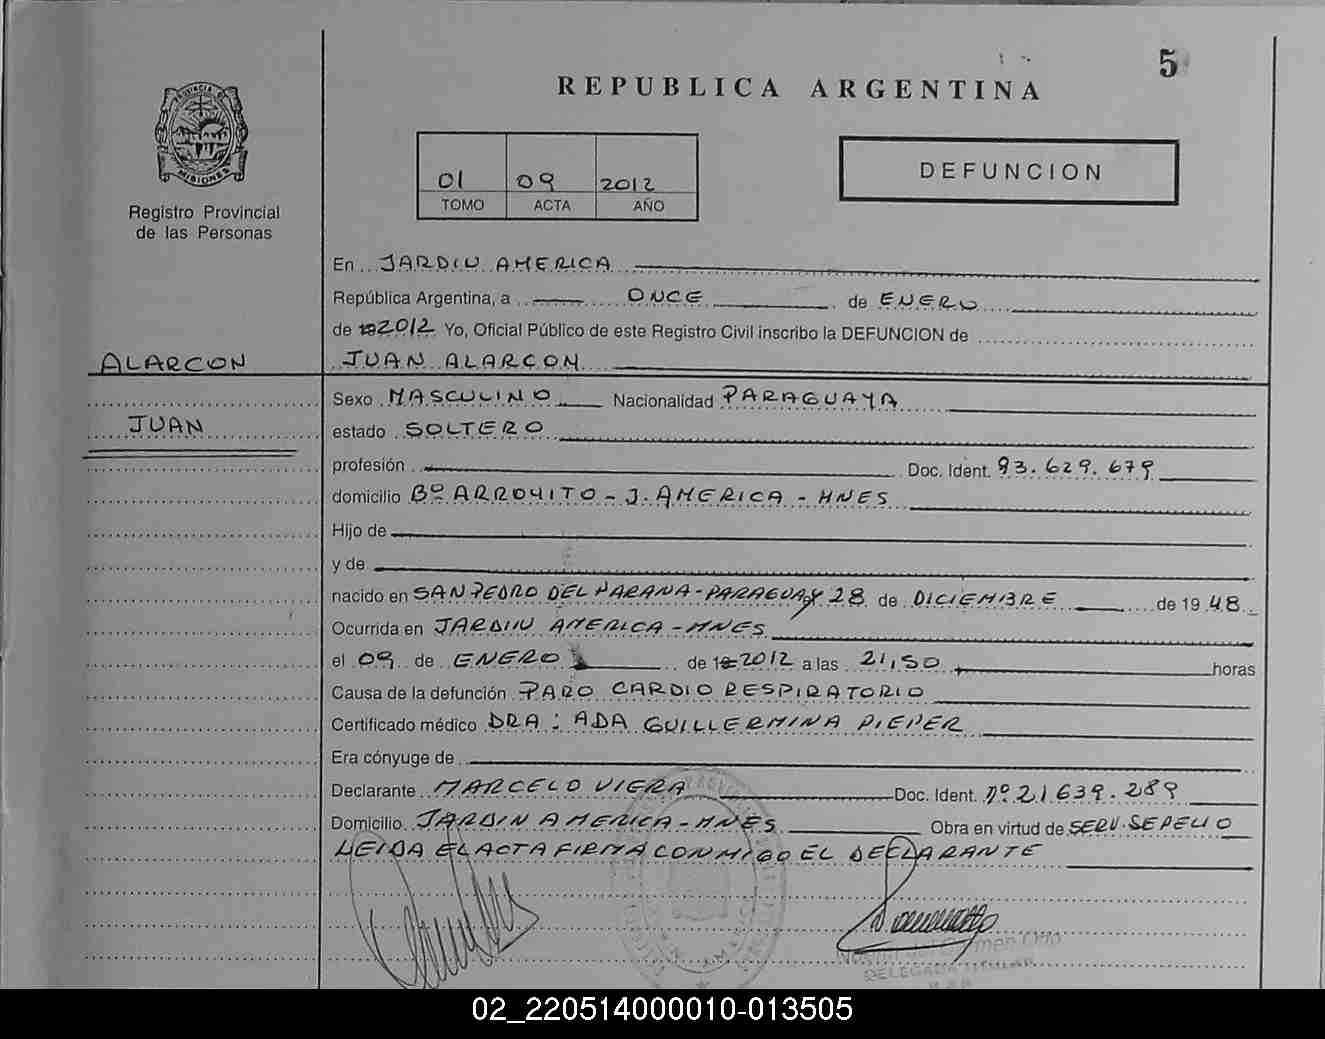 5
REPUBLICA ARGENTINA
MISIONES
Registro Provincial
de las Personas
01 09 2012
TOMO ACTA AÑO
DEFUNCION
En JARDIN AMERICA
República Argentina, a ONCE de ENERO
de 2012 Yo, Oficial Público de este Registro Civil inscribo la DEFUNCION de
ALARCON
JUAN
JUAN ALARCON
Sexo MASCULINO Nacionalidad PARAGUAYA
estado SOLTERO
profesión Doc. Ident. 93.629.679
domicilio Bº ARROYITO - J. AMERICA - MNES
Hijo de
y de
nacido en SAN PEDRO DEL PARANA - PARAGUAY 28 de DICIEMBRE de 1948
Ocurrida en JARDIN AMERICA - MNES
el 09 de ENERO de 2012 a las 21,50 horas
Causa de la defunción PARO CARDIO RESPIRATORIO
Certificado médico DRA: ADA GUILLERMINA PIEPER
Era cónyuge de
Declarante MARCELO VIERA Doc. Ident. Nº 21639.289
Domicilio JARDIN AMERICA - MNES Obra en virtud de SERV. SEPELIO
LEIDA EL ACTA FIRMA CONMIGO EL DECLARANTE
DELEGADA TITULAR
02_220514000010-013505